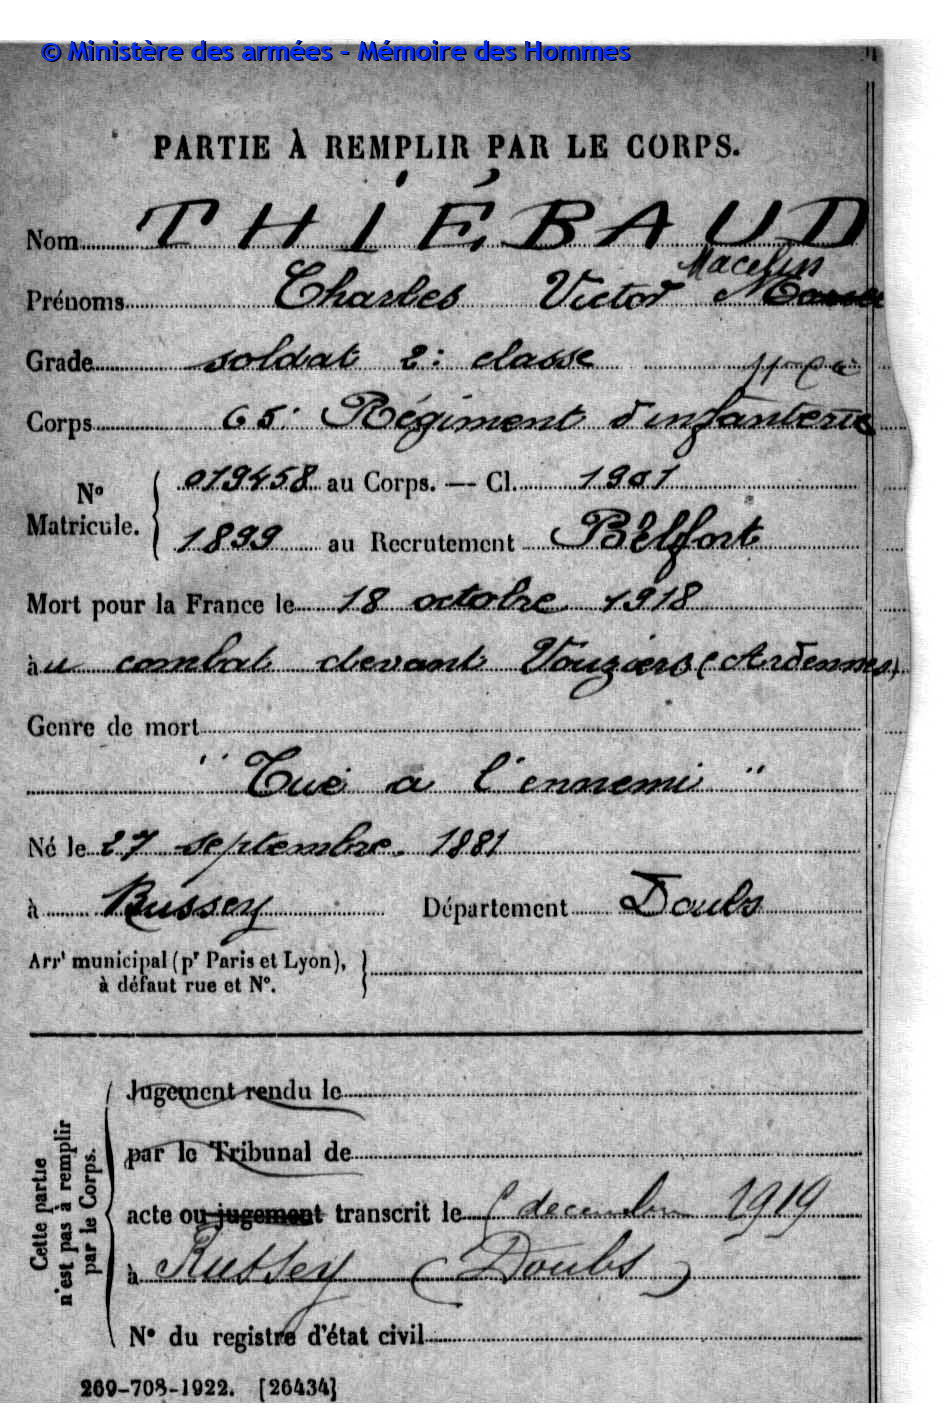 © Ministère des armées - Mémoire des Hommes
PARTIE À REMPLIR PAR LE CORPS.
Nom THIÉBAUD
Macelin
Prénoms Charles Victor
Grade soldat 2e classe
11e Cie
Corps 65e Régiment d'infanterie
No Matricule. 019458 au Corps. — Cl. 1901
1899 au Recrutement Belfort
Mort pour la France le 18 octobre 1918
au combat devant Vouziers (Ardennes)
Genre de mort
"Tué a l'ennemi"
Né le 27 septembre 1881
à Russey Département Doubs
Arrt municipal (pr Paris et Lyon),
à défaut rue et No.
Cette partie
n'est pas à remplir
par le Corps.
Jugement rendu le
par le Tribunal de
acte ou jugement transcrit le decembre 1919
à Russey (Doubs)
No du registre d'état civil
269-708-1922. [26434]